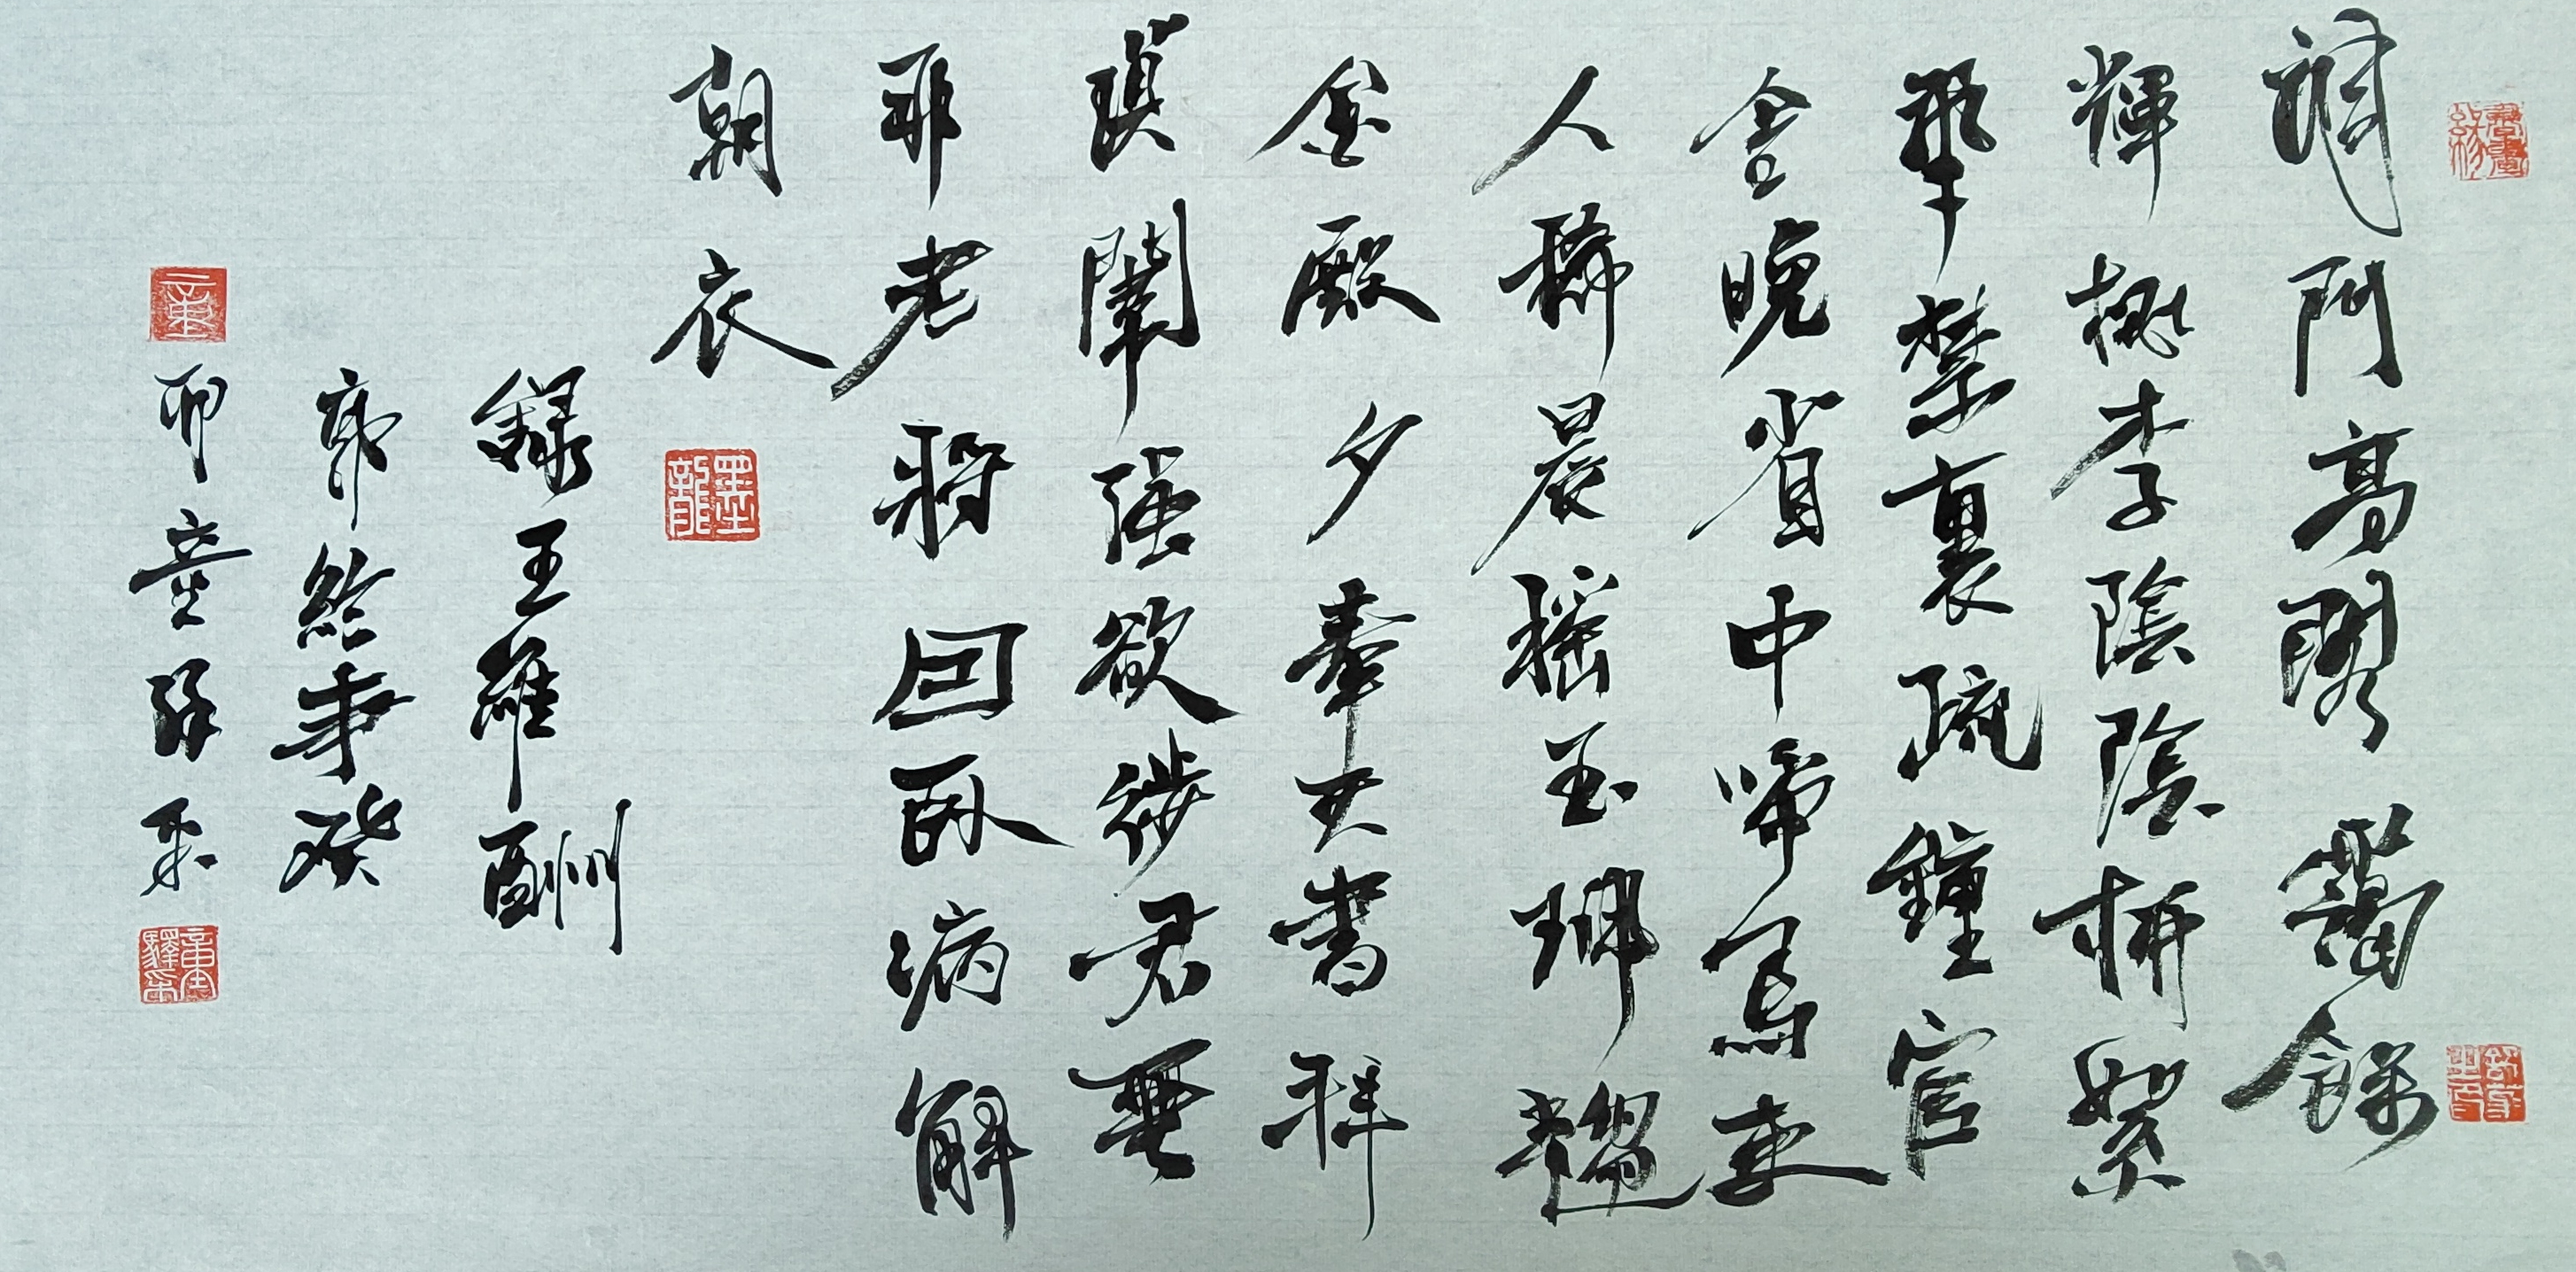 洞門高閣靄餘
輝桃李陰陰柳絮
飛禁裏疏鐘官
舍晚省中啼鳥吏
人稀晨搖玉珮趨
金殿夕奉天書拜
瑣闈強欲從君無
那老將因臥病解
朝衣
墨龍
錄王維酬
郭給事癸
卯童驛采
童
童驛采